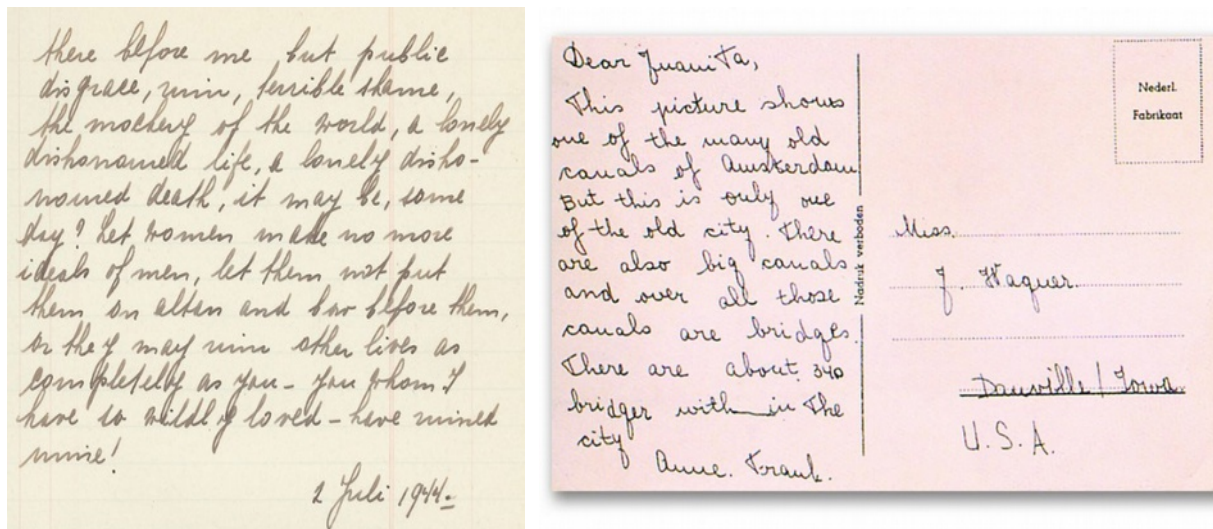 there before me but public
disgrace, ruin, terrible shame,
the mockery of the world, a lonely
dishonoured life, a lonely disho-
noured death, it may be, some
day? Let women make no more
ideals of men, let them not put
them on altars and bow before them,
or they may ruin other lives as
completely as you - you whom I
have so wildly loved - have ruined
mine!
2 Juli 1944.-
Dear Juanita,
This picture shows
one of the many old
canals of Amsterdam
But this is only one
of the old city. There
are also big canals
and over all those
canals are bridges.
There are about 340
bridges with in the
city
Anne. Frank.
Nadruk verboden
Nederl.
Fabrikaat
Miss.
J. Wagner.
Danville / Iowa
U.S.A.